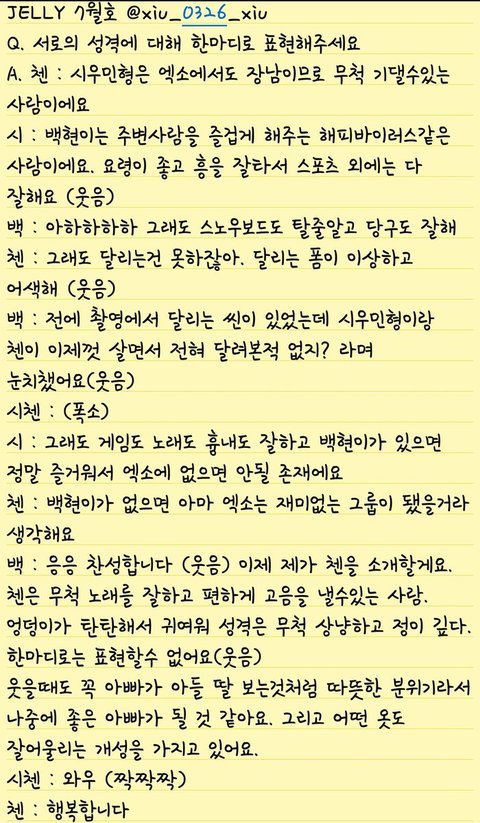 JELLY 7월호 @xiu_0326_xiu
Q. 서로의 성격에 대해 한마디로 표현해주세요
A. 첸 : 시우민형은 엑소에서도 장남이므로 무척 기댈수있는
사람이에요
시 : 백현이는 주변사람을 즐겁게 해주는 해피바이러스같은
사람이에요. 요령이 좋고 흥을 잘타서 스포츠 외에는 다
잘해요 (웃음)
백 : 아하하하하 그래도 스노우보드도 탈줄알고 당구도 잘해
첸 : 그래도 달리는건 못하잖아. 달리는 폼이 이상하고
어색해 (웃음)
백 : 전에 촬영에서 달리는 씬이 있었는데 시우민형이랑
첸이 이제껏 살면서 전혀 달려본적 없지? 라며
눈치챘어요(웃음)
시첸 : (폭소)
시 : 그래도 게임도 노래도 흉내도 잘하고 백현이가 있으면
정말 즐거워서 엑소에 없으면 안될 존재에요
첸 : 백현이가 없으면 아마 엑소는 재미없는 그룹이 됐을거라
생각해요
백 : 응응 찬성합니다 (웃음) 이제 제가 첸을 소개할게요.
첸은 무척 노래를 잘하고 편하게 고음을 낼수있는 사람.
엉덩이가 탄탄해서 귀여워 성격은 무척 상냥하고 정이 깊다.
한마디로는 표현할수 없어요(웃음)
웃을때도 꼭 아빠가 아들 딸 보는것처럼 따뜻한 분위기라서
나중에 좋은 아빠가 될 것 같아요. 그리고 어떤 옷도
잘어울리는 개성을 가지고 있어요.
시첸 : 와우 (짝짝짝)
첸 : 행복합니다